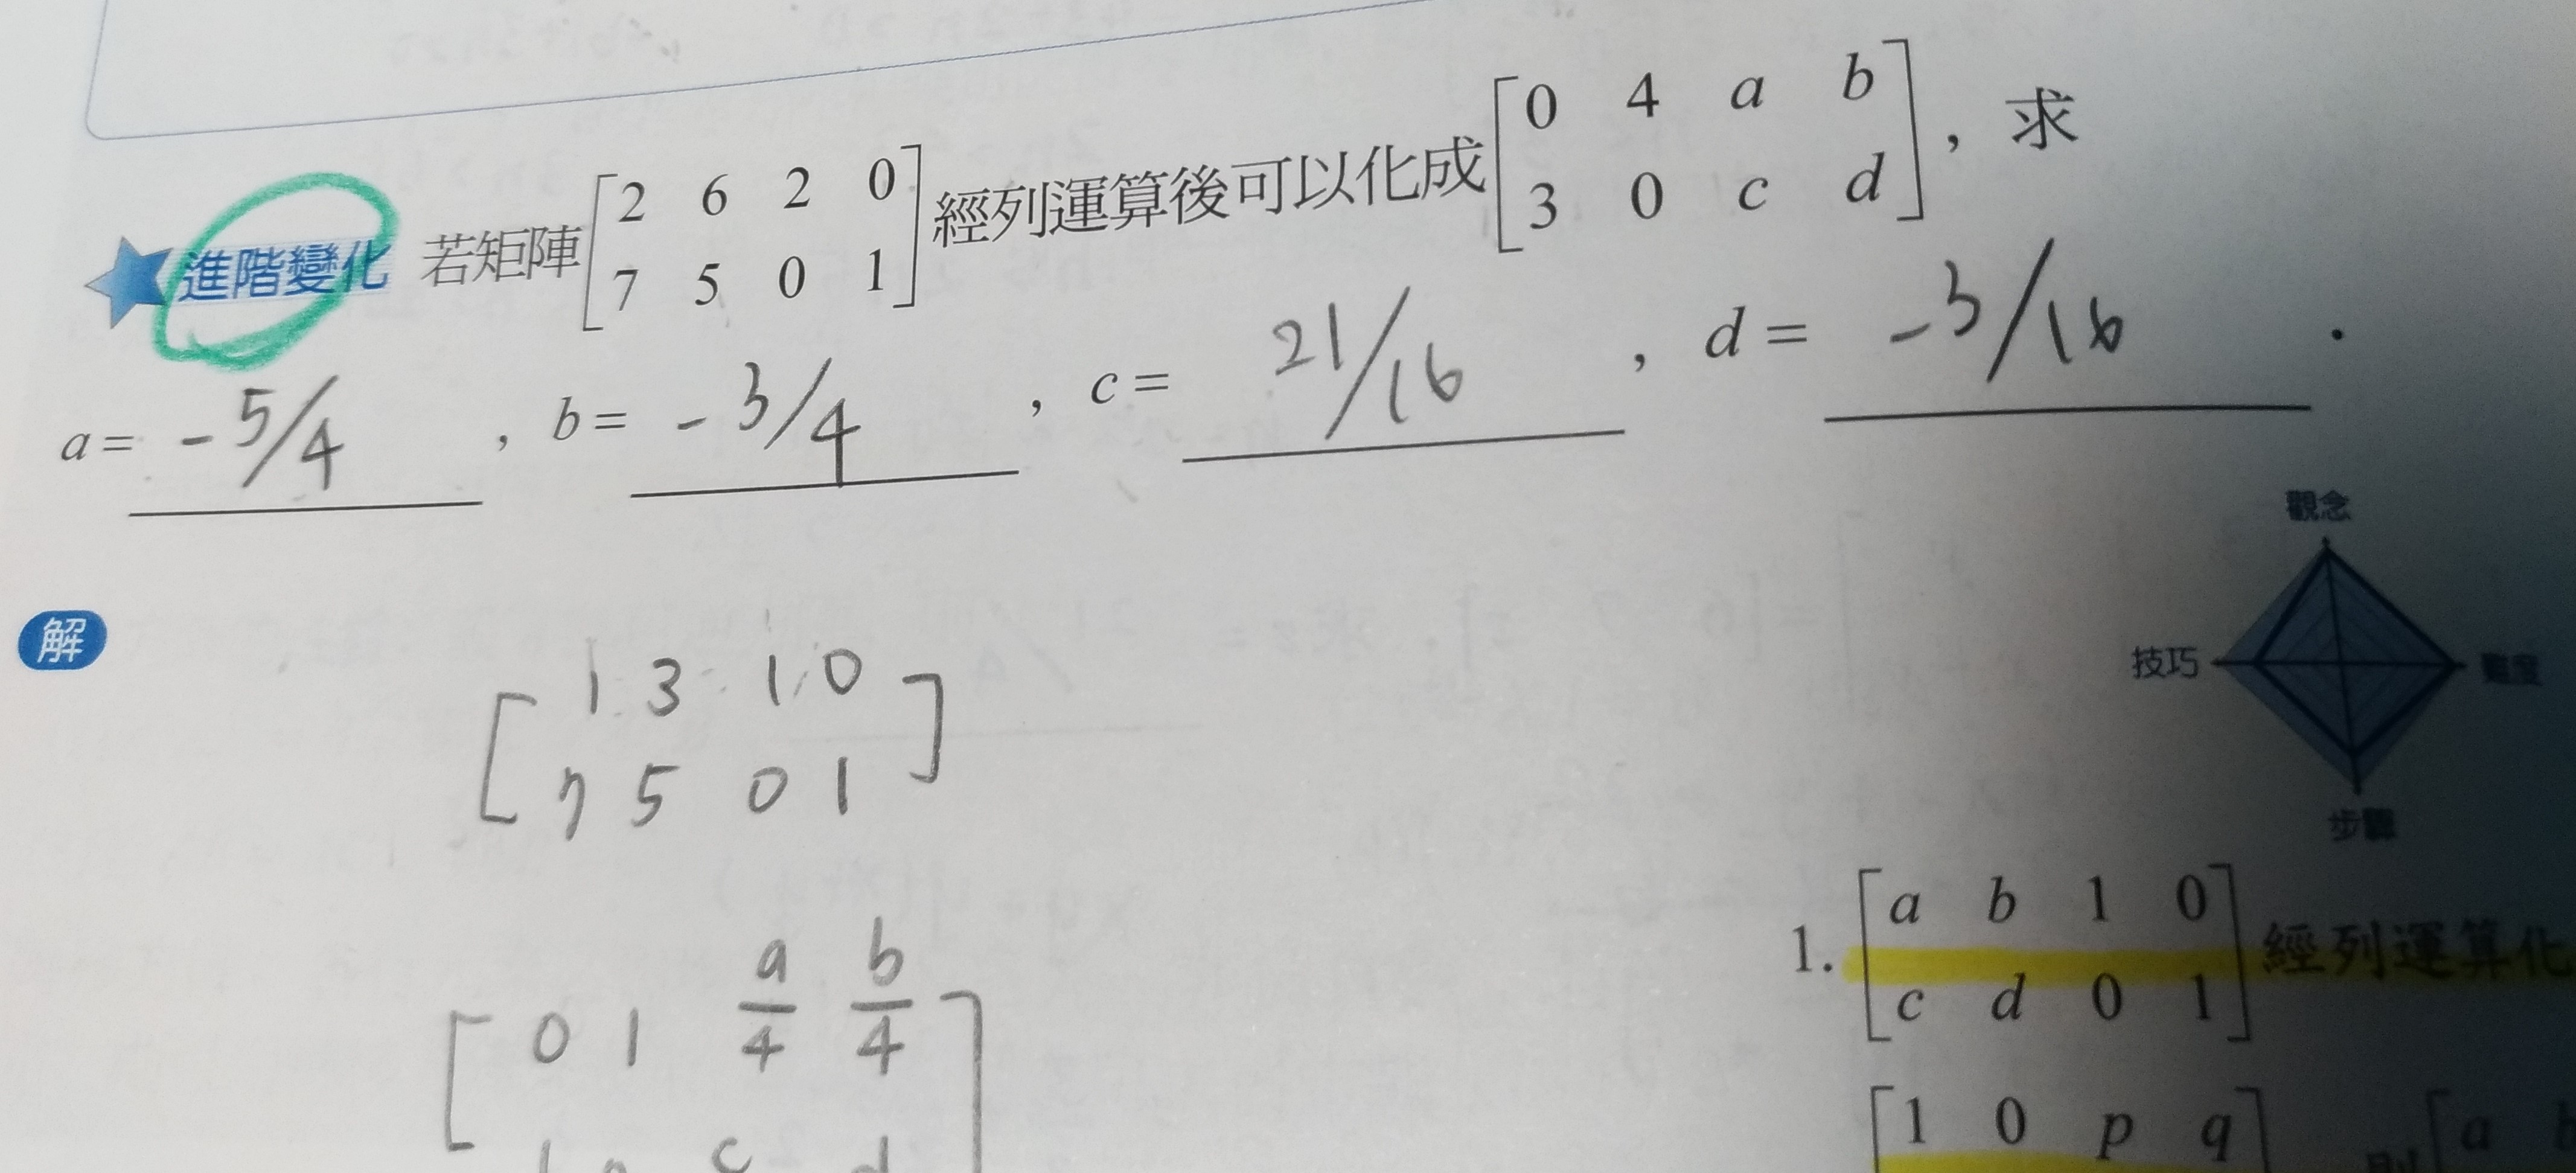 進階變化 若矩陣[2 6 2 0
7 5 0 1]經列運算後可以化成[0 4 a b
3 0 c d],求
a= -5/4 , b= -3/4 , c= 21/16 , d= -3/16 .
觀念
技巧
步驟
解
[1 3 1 0
7 5 0 1]
[0 1 a/4 b/4
c d
1. [a b 1 0
c d 0 1] 經列運算化
[1 0 p q]